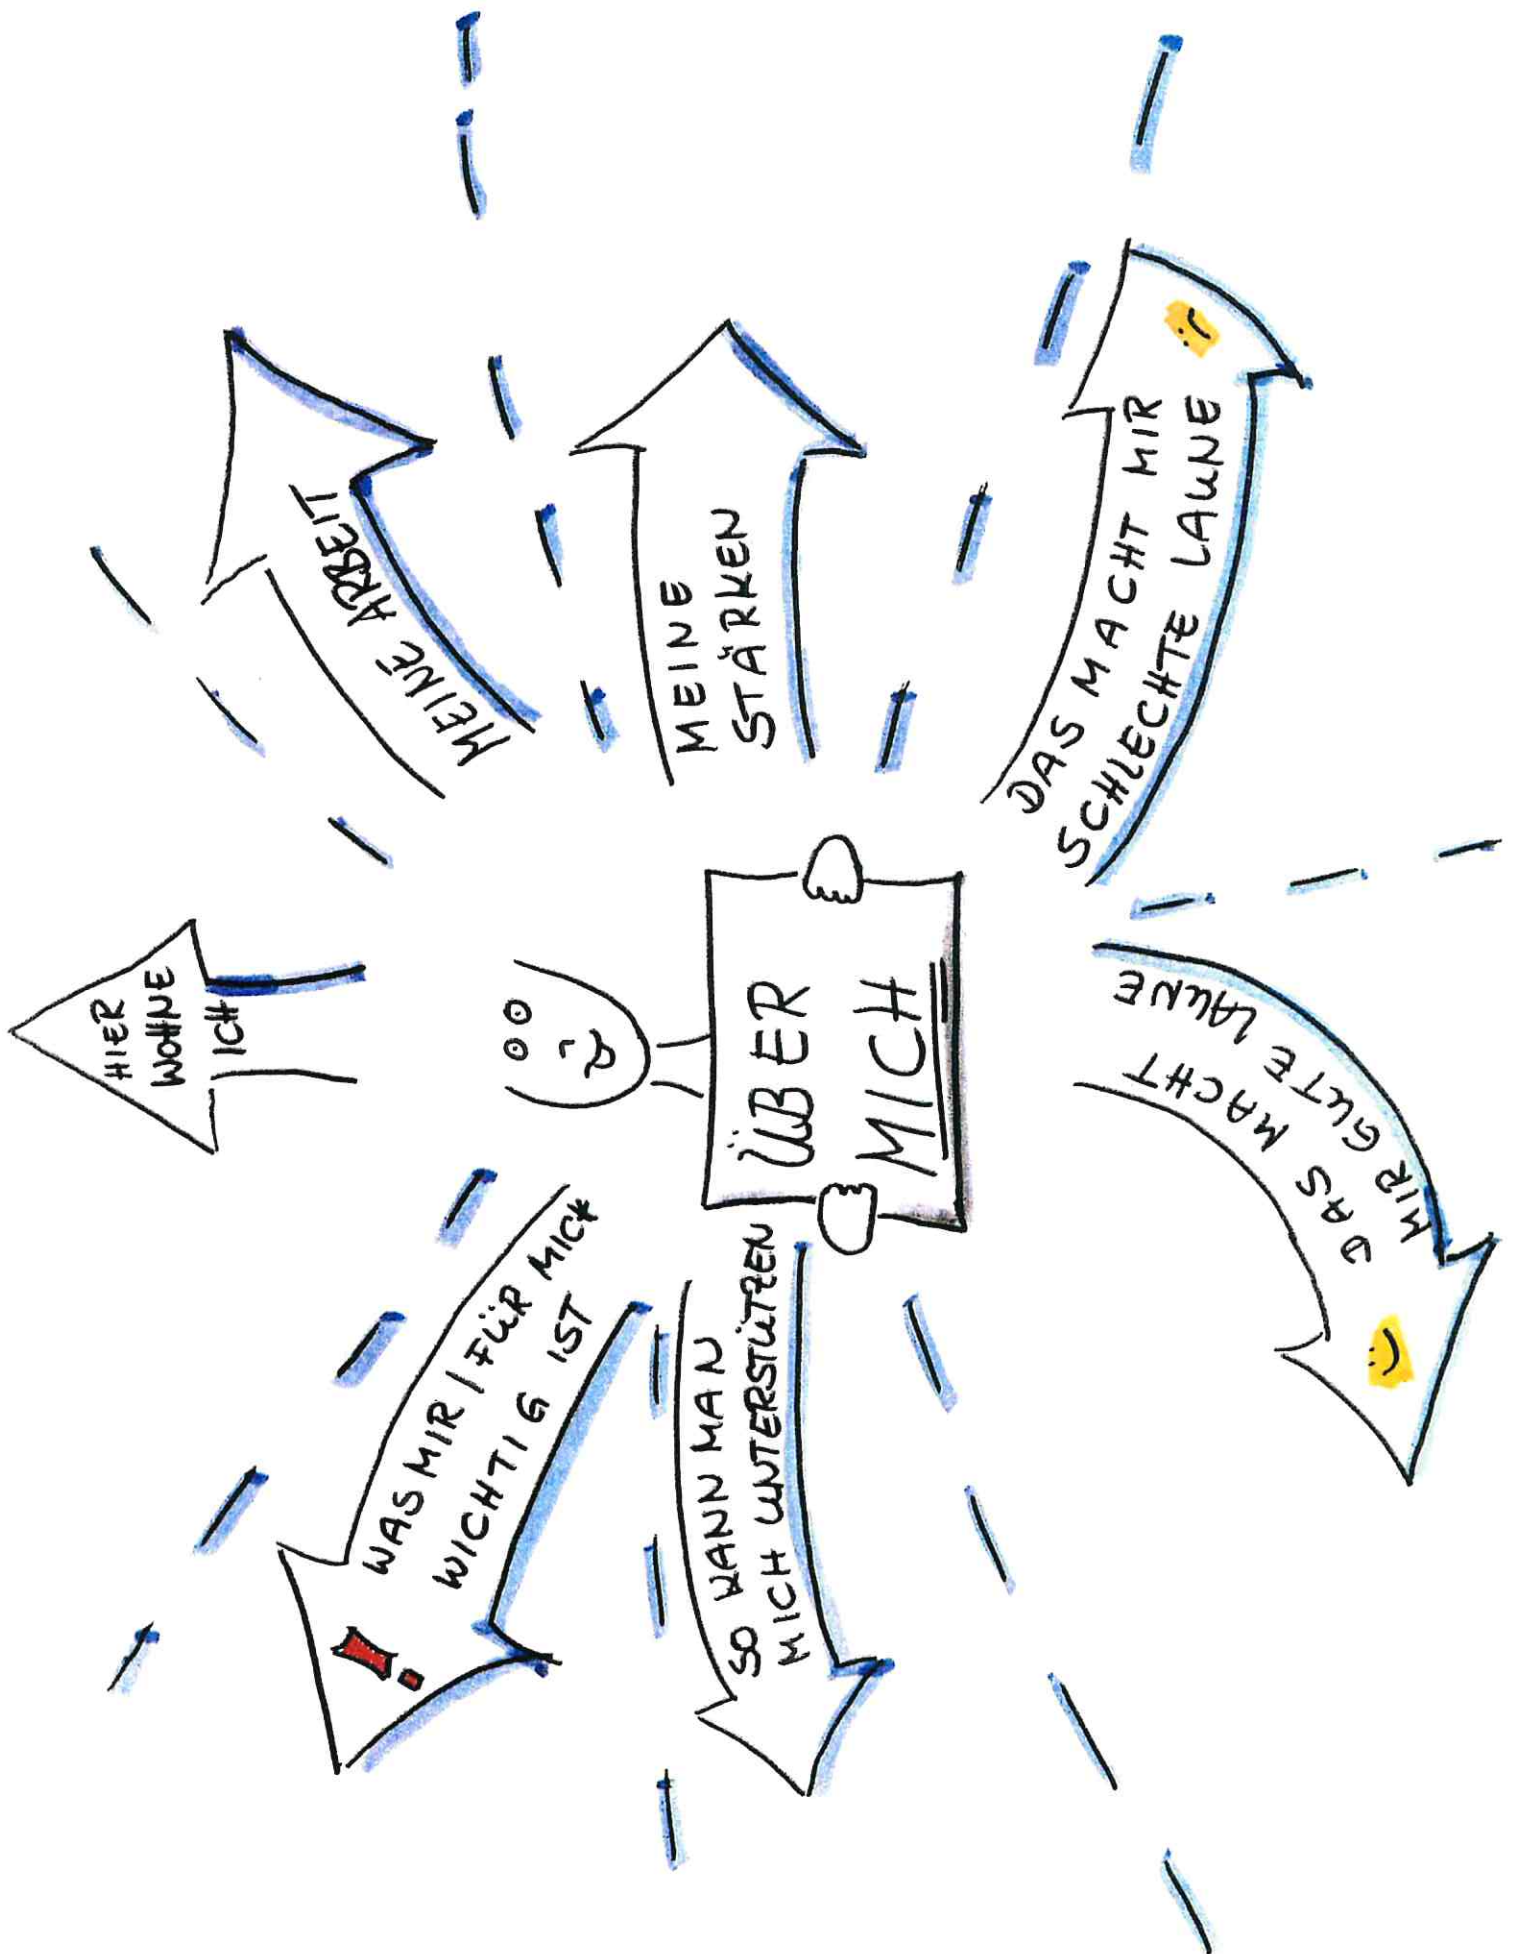 ÜBER
MICH
HIER
WOHNE
ICH
MEINE ARBEIT
MEINE
STÄRKEN
DAS MACHT MIR
SCHLECHTE LAUNE
DAS MACHT
MIR GUTE LAUNE
SO KANN MAN
MICH UNTERSTÜTZEN
WAS MIR / FÜR MICH
WICHTIG IST
!